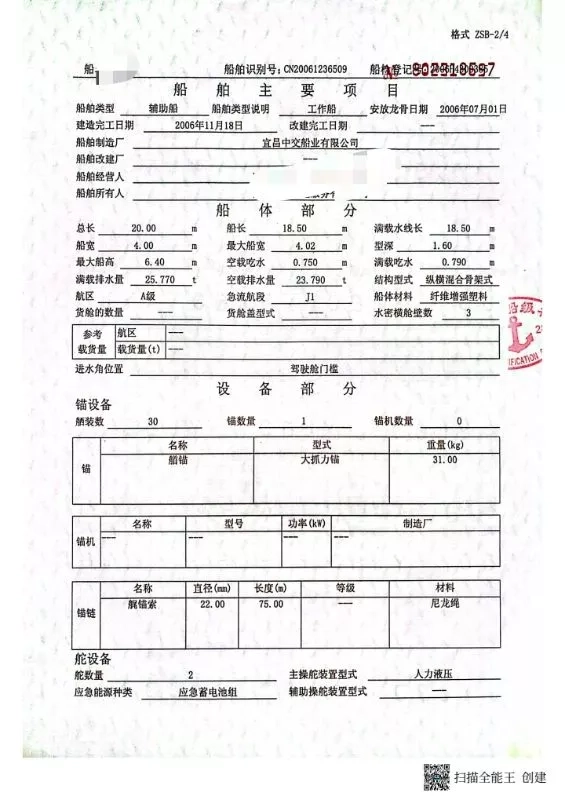 格式 ZSB-2/4
船 船舶识别号:CN20061236509 船检登记号
船 舶 主 要 项 目
船舶类型 辅助船 船舶类型说明 工作船 安放龙骨日期 2006年07月01日
建造完工日期 2006年11月18日 改建完工日期 ---
船舶制造厂 宜昌中交船业有限公司
船舶改建厂 ---
船舶经营人
船舶所有人
船 体 部 分
总长 20.00 m 船长 18.50 m 满载水线长 18.50 m
船宽 4.00 m 最大船宽 4.02 m 型深 1.60 m
最大船高 6.40 m 空载吃水 0.750 m 满载吃水 0.790 m
满载排水量 25.770 t 空载排水量 23.790 t 结构型式 纵横混合骨架式
航区 A级 急流航段 J1 船体材料 纤维增强塑料
货舱的数量 --- 货舱盖型式 --- 水密横舱壁数 3
参考 航区 ---
载货量 载货量(t) ---
进水角位置 驾驶舱门槛
设 备 部 分
锚设备
舾装数 30 锚数量 1 锚机数量 0
名称 型式 重量(kg)
锚 艏锚 大抓力锚 31.00
名称 型号 功率(kW) 制造厂
锚机 --- --- --- ---
名称 直径(mm) 长度(m) 等级 材料
锚链 艉锚索 22.00 75.00 --- 尼龙绳
舵设备
舵数量 2 主操舵装置型式 人力液压
应急能源种类 应急蓄电池组 辅助操舵装置型式 ---
扫描全能王 创建